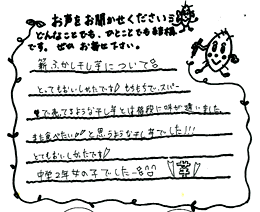 お声をお聞かせください
どんなことでも、ひとことでも結構
です。ぜひお寄せ下さい。
薪ふかし干し芋について
とってもおいしかったです♡もちもちで、スーパー
で売ってるような干し芋とは格段に味が違いました。
また食べたい♡♡と思うような干し芋でした!!!
とてもおいしかったです♡
中学2年女の子でした